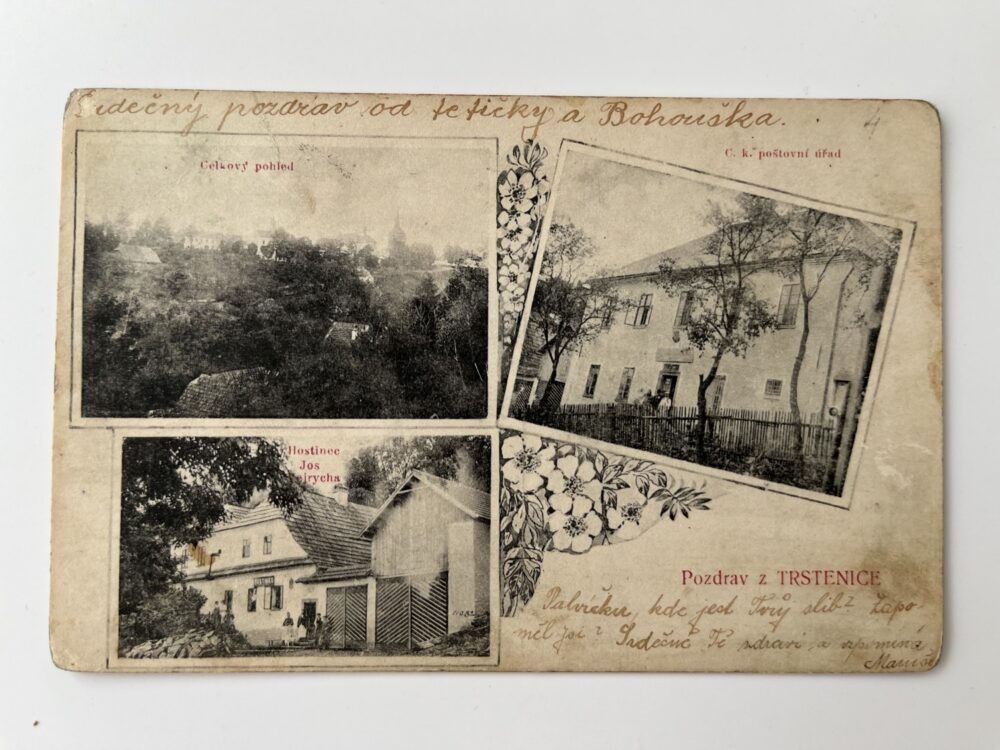 Srdečný pozdrav od tetičky a Bohouška.
4
Celkový pohled
C. k. poštovní úřad
Hostinec
Jos
Pozdrav z TRSTENICE
kde jest Tvůj slib? Zapo-
měl jsi? Srdečně Tě zdraví a vzpomíná